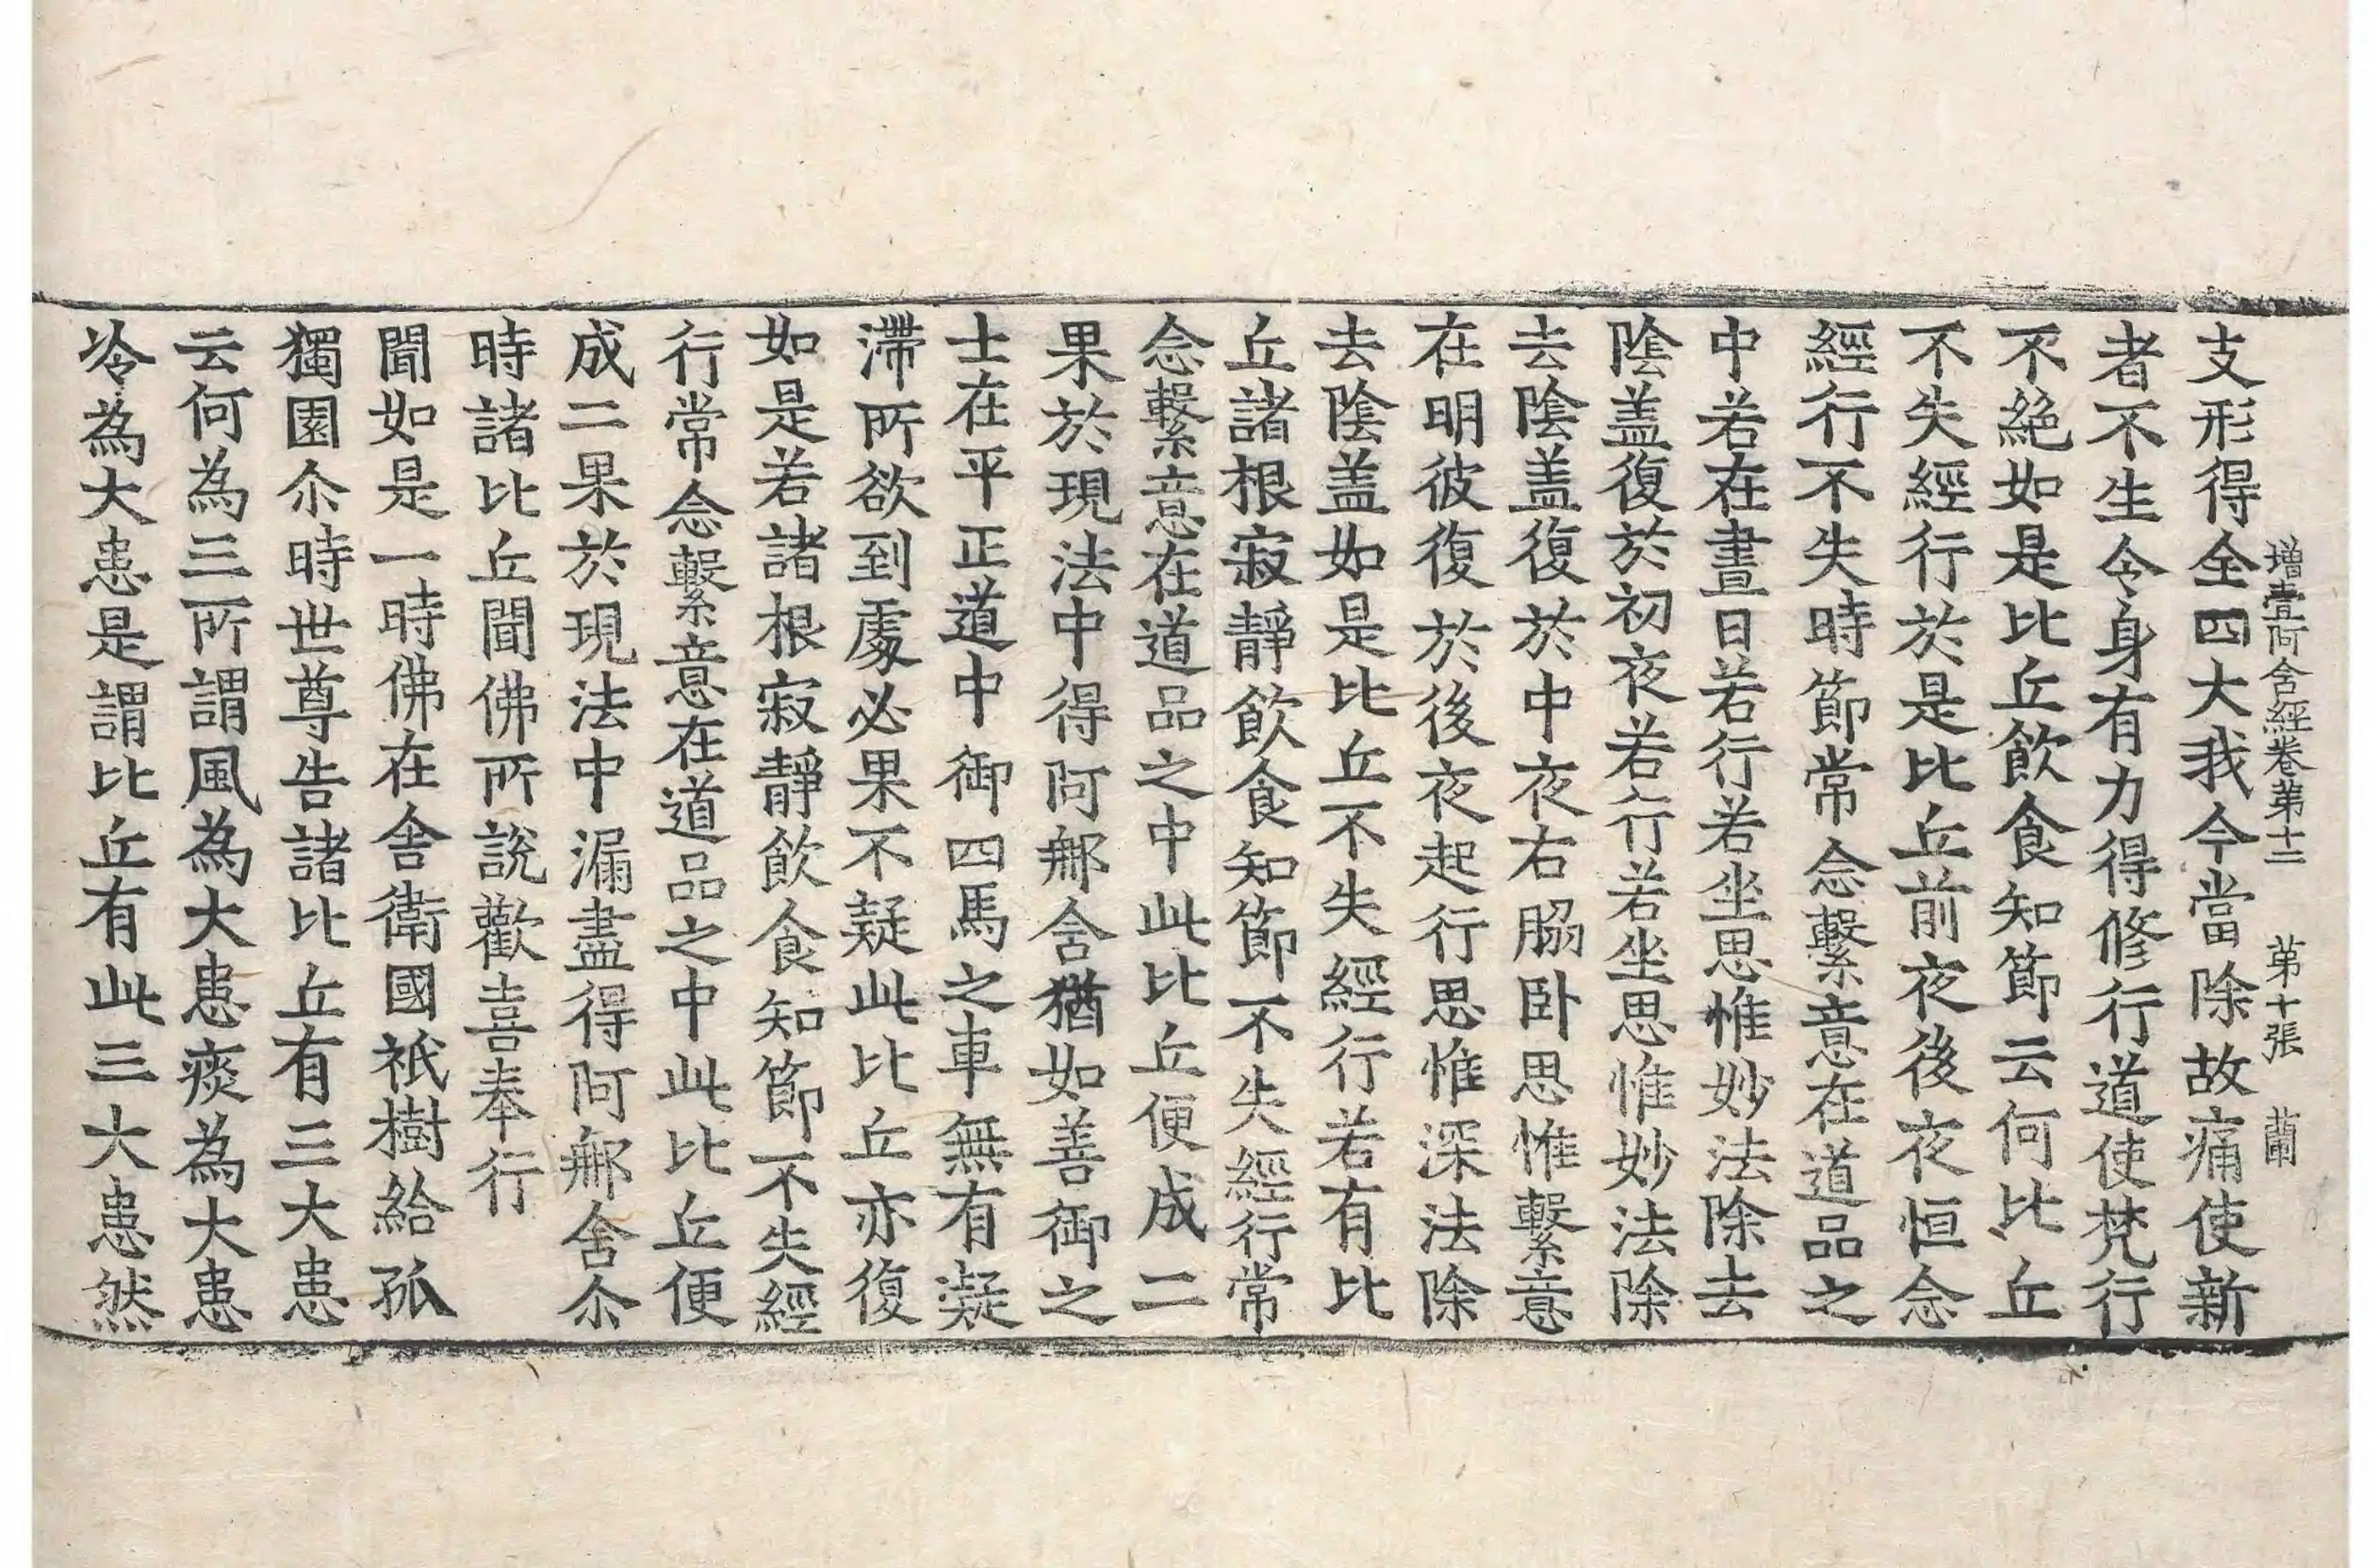 增壹阿含經卷第十二 第十張 蘭
支形得全四大我今當除故痛使新
者不生令身有力得修行道使梵行
不絕如是比丘飲食知節云何比丘
不失經行於是比丘前夜後夜恒念
經行不失時節常念繫意在道品之
中若在晝日若行若坐思惟妙法除去
陰盖復於初夜若行若坐思惟妙法除
去陰盖復於中夜右脇卧思惟繫意
在明彼復於後夜起行思惟深法除
去陰盖如是比丘不失經行若有比
丘諸根寂靜飲食知節不失經行常
念繫意在道品之中此比丘便成二
果於現法中得阿那含猶如善御之
士在平正道中御四馬之車無有凝
滯所欲到處必果不疑此比丘亦復
如是若諸根寂靜飲食知節不失經
行常念繫意在道品之中此比丘便
成二果於現法中漏盡得阿那含尒
時諸比丘聞佛所說歡喜奉行
聞如是一時佛在舍衛國祇樹給孤
獨園尒時世尊告諸比丘有三大患
云何為三所謂風為大患痰為大患
冷為大患是謂比丘有此三大患然